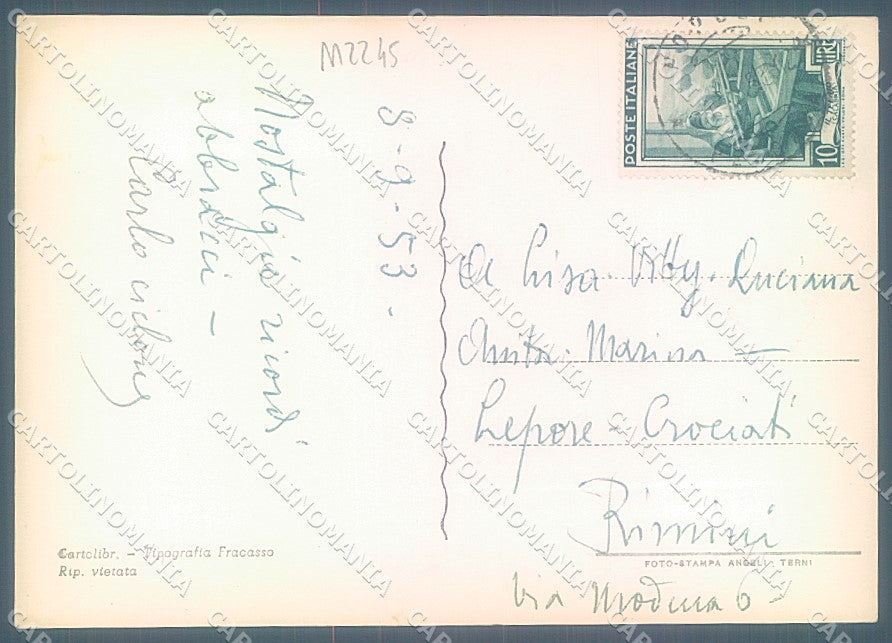 M2245
8-9-53.
Nostalgia ricordi
abbracci -
Carlo
POSTE ITALIANE
LIRE
10
A Lisa. Vitty. Luciana
Anita. Marina -
Lepore - Crociati
Rimini
Via Modena 6
Cartolibr. - Tipografia Fracasso
Rip. vietata
FOTO-STAMPA ANGELI - TERNI
CARTOLINOMANIA